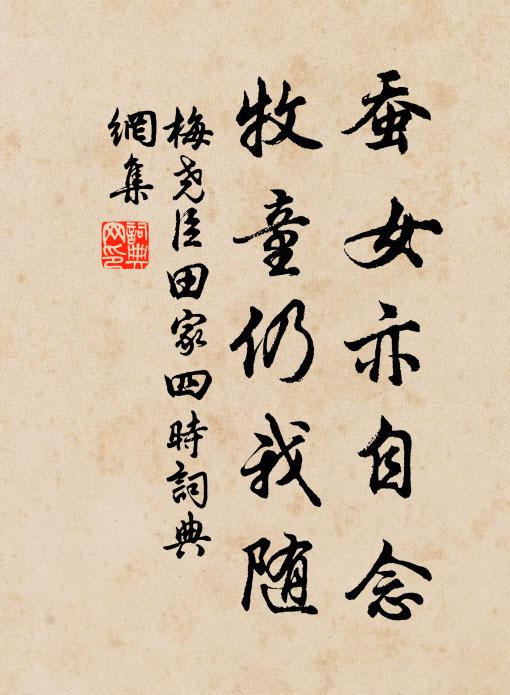 蚕女亦自念
牧童仍我随
梅尧臣田家四時詞典
網集
詞典
网印